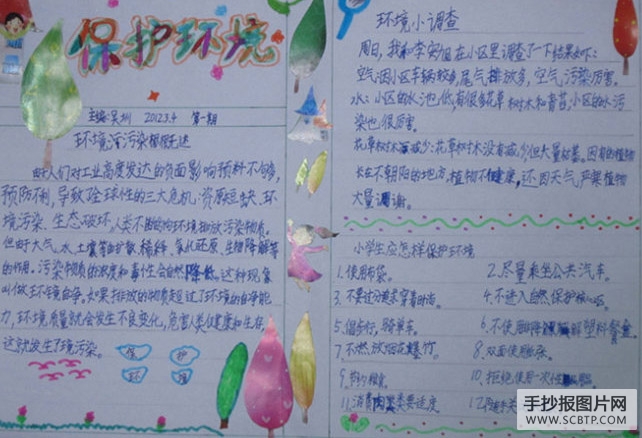 保护环境
主编:吴圳 2012.3.4 第一期
环境污染概述
由于人们对工业高度发达的负面影响预料不够,
预防不利,导致了全球性的三大危机:资源短缺、环
境污染、生态破坏,人类不断的向环境排放污染物质。
但由于大气、水、土壤等的扩散、稀释、氧化还原、生物降解等
的作用。污染物质的浓度和毒性会自然降低,这种现象
叫做环境自净,如果排放的物质超过了环境的自净能
力,环境质量就会发生不良变化,危害人类健康和生存,
这就发生了环境污染。
保 护
环 境
环境小调查
周日,我和学实值在小区里调查了一下结果如下:
空气:因小区车辆较多,尾气排放多,空气污染厉害。
水:小区的水池,很有很多花草树木和青苔,小区的水污
染也很厉害。
花草树木减少:花草树木没有减少,但大量枯萎。因有的植物
长在不朝阳的地方,植物不健康,还因天气,严寒植物
大量凋谢。
小学生应怎样保护环境
1.使用布袋。 2.尽量乘坐公共汽车。
3.不要过分追求穿着时尚。 4.不进入自然保护核心区。
5.倡步行,骑单车。 6.不使用非降解塑料餐盒。
7.不燃放烟花爆竹。 8.双面使用纸张。
9.节约粮食 10.拒绝使用一次性
11.消费肉类要适度 12.随手关
手抄报图片网
WWW.SCBTP.COM